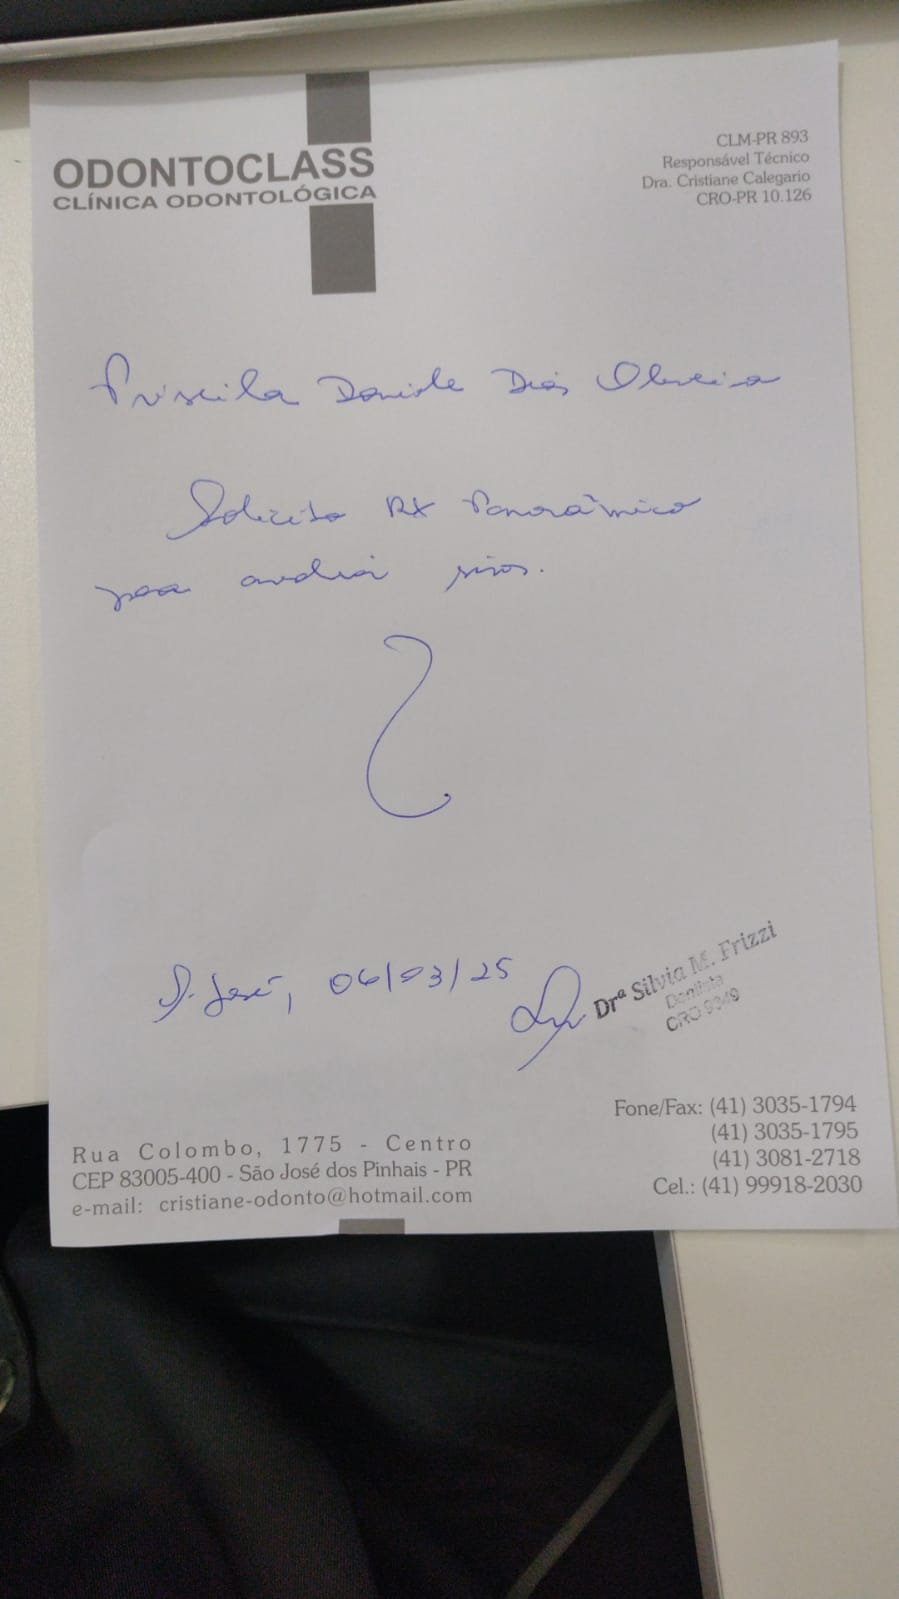 ODONTOCLASS
CLÍNICA ODONTOLÓGICA
CLM-PR 893
Responsável Técnico
Dra. Cristiane Calegario
CRO-PR 10.126
Priscila Daniele Dias Oliveira
Solicito RX Panorâmico
para avaliar sisos.
S. José, 06/03/25
Drª Silvia M. Frizzi
Dentista
CRO 9349
Rua Colombo, 1775 - Centro
CEP 83005-400 - São José dos Pinhais - PR
e-mail: cristiane-odonto@hotmail.com
Fone/Fax: (41) 3035-1794
(41) 3035-1795
(41) 3081-2718
Cel.: (41) 99918-2030